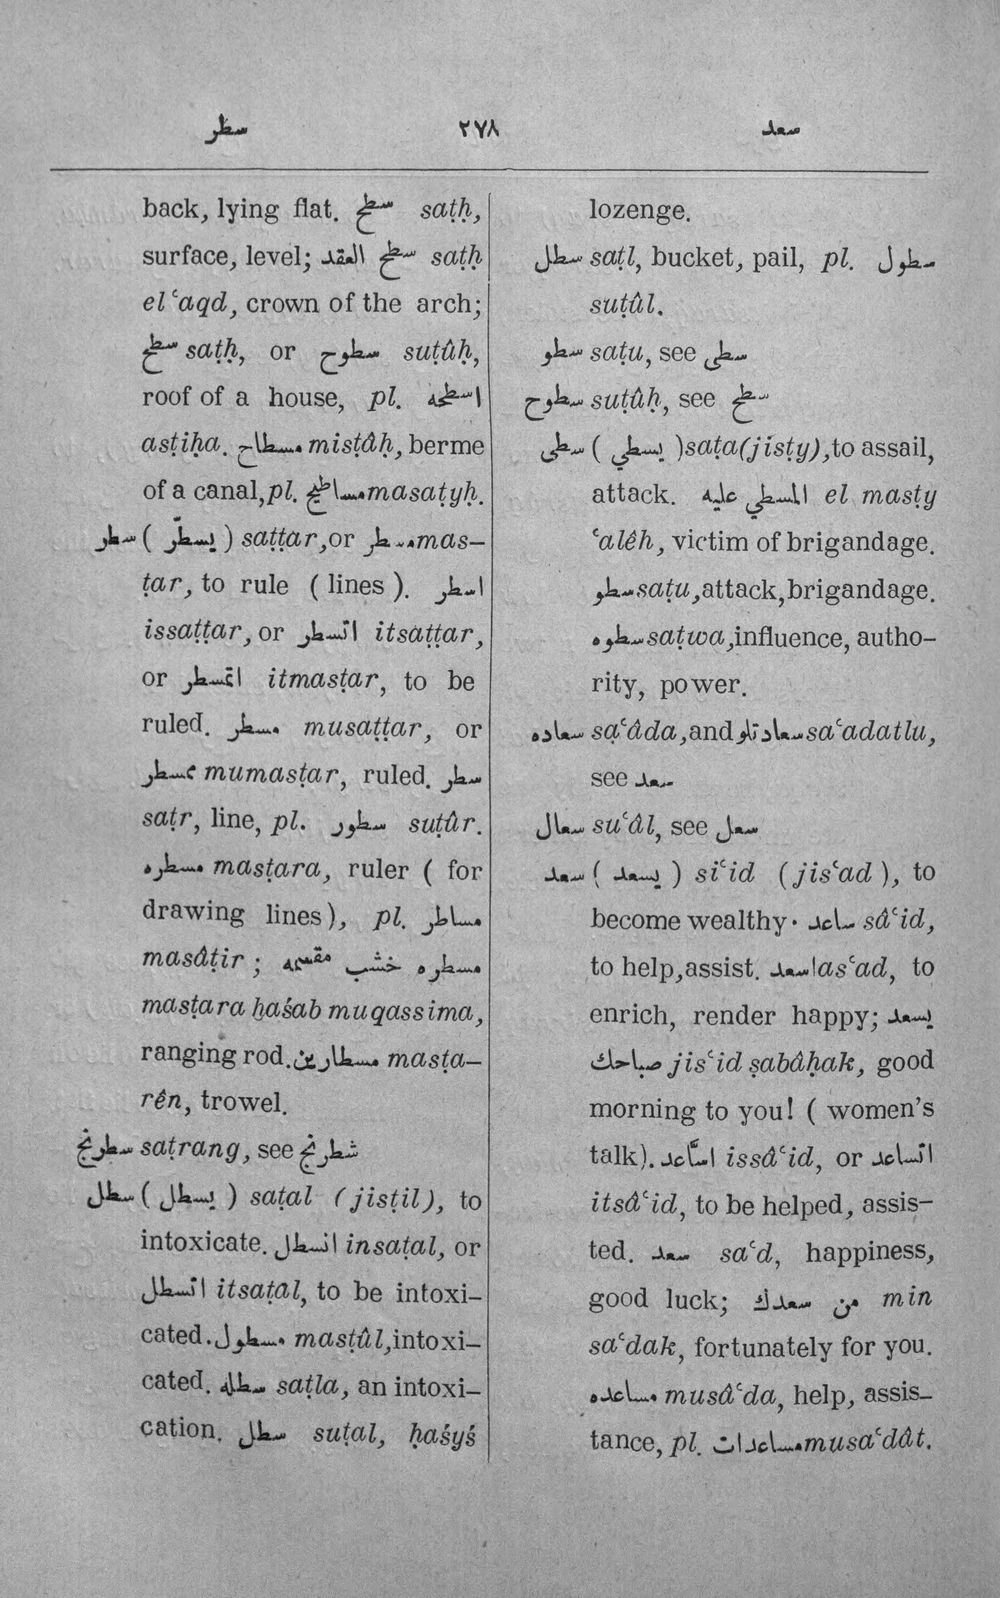 سطر ٢٧٨ سعد
back, lying flat. سطح saṭḥ,
surface, level; سطح العقد saṭḥ
elʿaqd, crown of the arch;
سطح saṭḥ, or سطوح suṭûḥ,
roof of a house, pl. اسطحه
asṭiḥa. مسطاح misṭâḥ, berme
of a canal, pl. مساطيح masaṭyḥ.
سطر ( يسطّر ) saṭṭar, or مسطر mas-
ṭar, to rule ( lines ). اسطر
issaṭṭar, or اتسطر itsaṭṭar,
or اتمسطر itmasṭar, to be
ruled. مسطر musaṭṭar, or
ممسطر mumasṭar, ruled. سطر
saṭr, line, pl. سطور suṭûr.
مسطره masṭara, ruler ( for
drawing lines), pl. مساطر
masâṭir ; مسطره خشب مقسمه
masṭara ḫaśab muqassima,
ranging rod. مسطارين masṭa-
rên, trowel.
سطرنج saṭrang, see شطرنج
سطل ( يسطل ) saṭal (jisṭil), to
intoxicate. انسطل insaṭal, or
اتسطل itsaṭal, to be intoxi-
cated. مسطول masṭûl, intoxi-
cated. سطله saṭla, an intoxi-
cation. سطل suṭal, ḥaśyś
lozenge.
سطل saṭl, bucket, pail, pl. سطول
suṭûl.
سطو saṭu, see سطى
سطوح suṭûḥ, see سطح
سطى ( يسطي ) saṭa (jisṭy), to assail,
attack. المسطي عليه el masṭy
ʿalêh, victim of brigandage.
سطو saṭu, attack, brigandage.
سطوه saṭwa, influence, autho-
rity, power.
سعاده saʿâda, and سعادتلو saʿadatlu,
see سعد
سعال suʿâl, see سعل
سعد ( يسعد ) siʿid (jisʿad ), to
become wealthy · ساعد sâʿid,
to help, assist. اسعد asʿad, to
enrich, render happy; يسعد
صباحك jisʿid ṣabâḥak, good
morning to you! ( women's
talk). اسّاعد issâʿid, or اتساعد
itsâʿid, to be helped, assis-
ted. سعد saʿd, happiness,
good luck; من سعدك min
saʿdak, fortunately for you.
مساعده musâʿda, help, assis-
tance, pl. مساعدات musaʿdât.